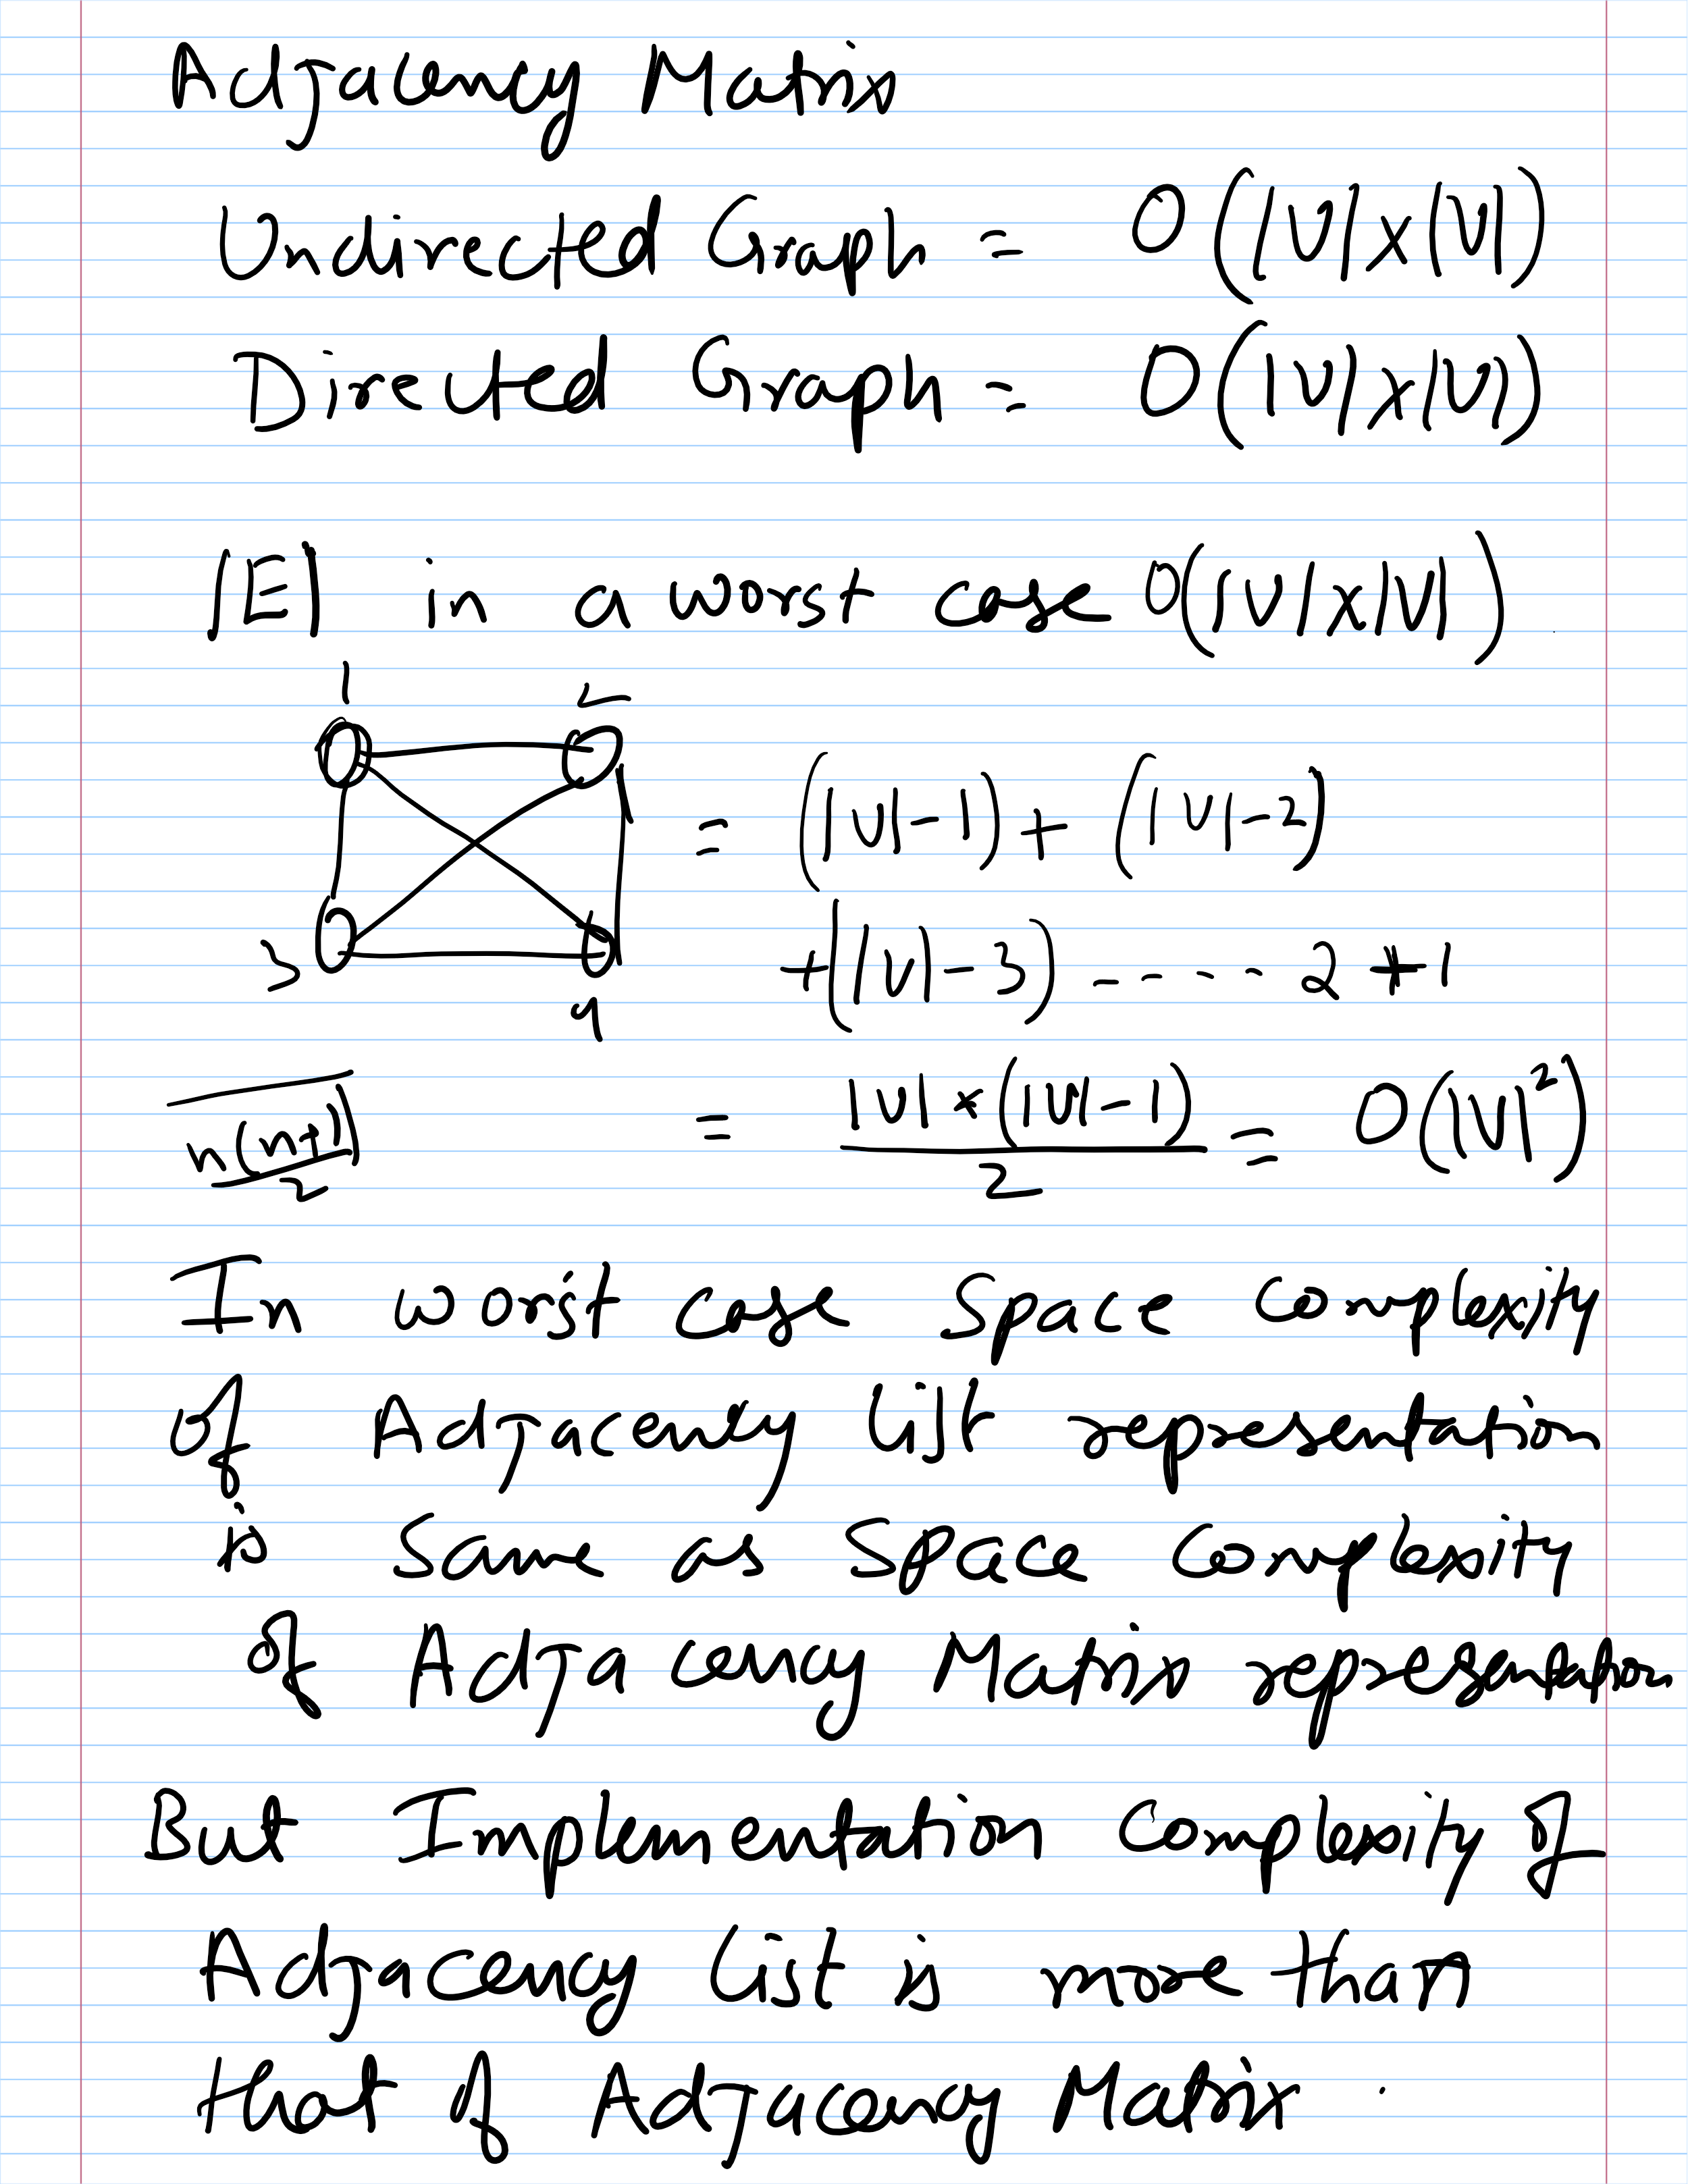 Adjacency Matrix
Undirected Graph = O(|V|x|V|)
Directed Graph = O(|V|x|V|)
|E| in a worst case O(|V|x|V|)
1
= (|V|-1)+(|V|-2)
3
+(|V|-3) - - - - 2 + 1
4
n(n+1)/2 = |V| * (|V|-1)/2 = O(|V|²)
In worst case Space Complexity
of Adjacency list representation
is Same as Space Complexity
of Adjacency Matrix representation
But Implementation Complexity of
Adjacency list is more than
that of Adjacency Matrix .